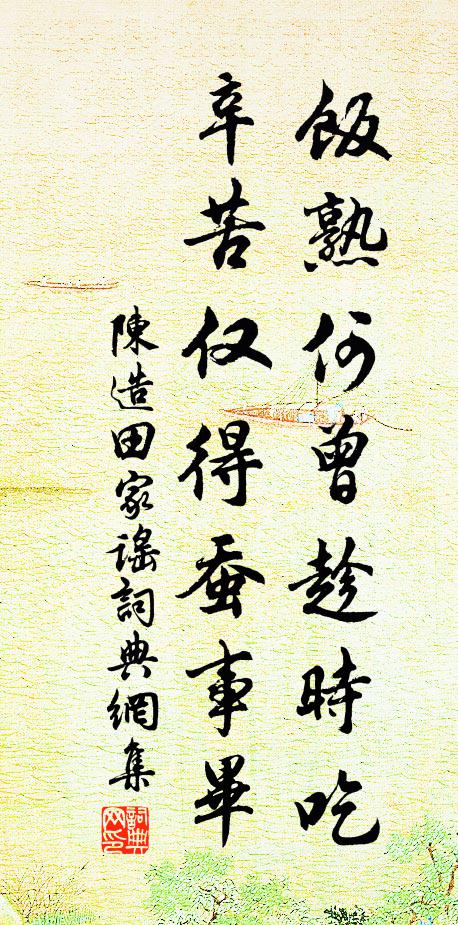 飯熟何曾趁時吃
辛苦仅得蚕事畢
陳造田家謠詞典網集
詞典网印